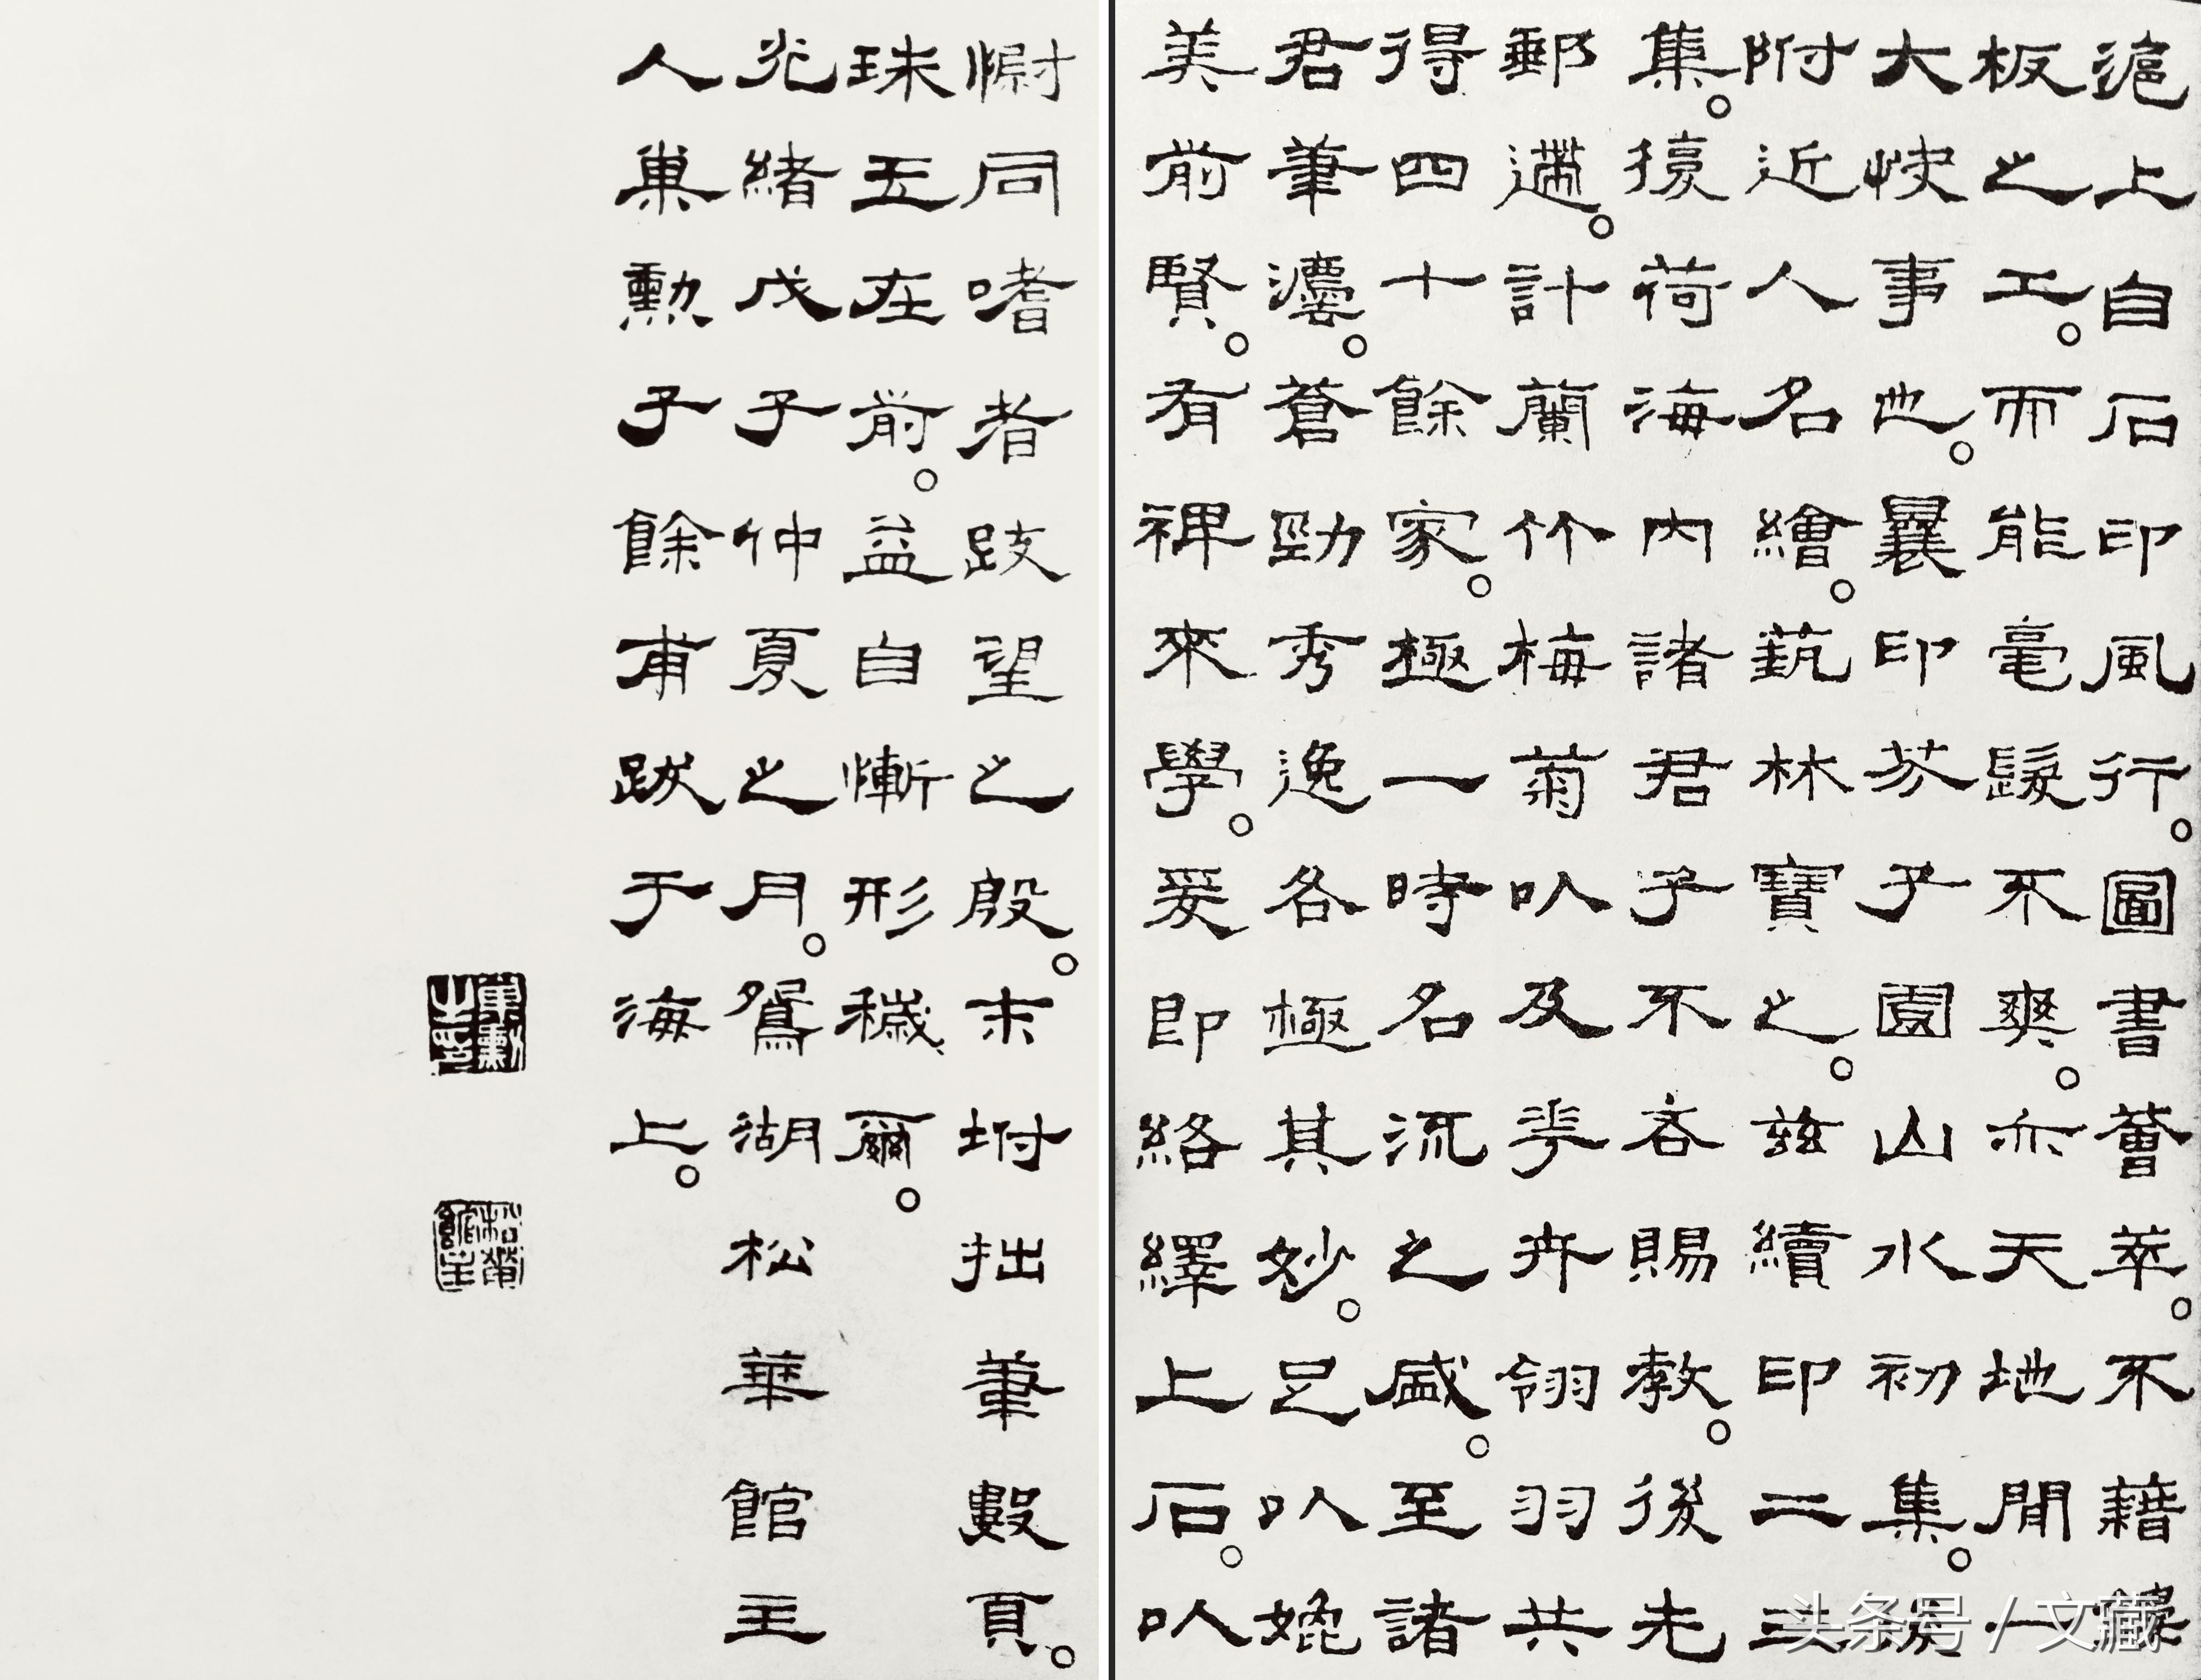 滬上自石印風行。圖書薈萃。不藉
板之工。而能毫髮不爽。亦天地間一
大快事也。曩印芥子園山水初集。
附近人名繪。藝林寶之。茲續印二三
集。猥荷海內諸君子不吝賜教。後先
郵遞。計蘭竹梅菊以及花卉翎羽共
得四十餘家。極一時名流之盛。至諸
君筆灋。蒼勁秀逸各極其妙。足以媲
美前賢。有裨來學。爰即絡繹上石。以
慰同嗜者跂望之殷。末坿拙筆數頁。
珠玉在前。益自慚形穢爾。
光緒戊子仲夏之月。鴛湖松華館主
人巢勳子餘甫跋于海上。
巢勳之印
松華館主
头条号 / 文藏